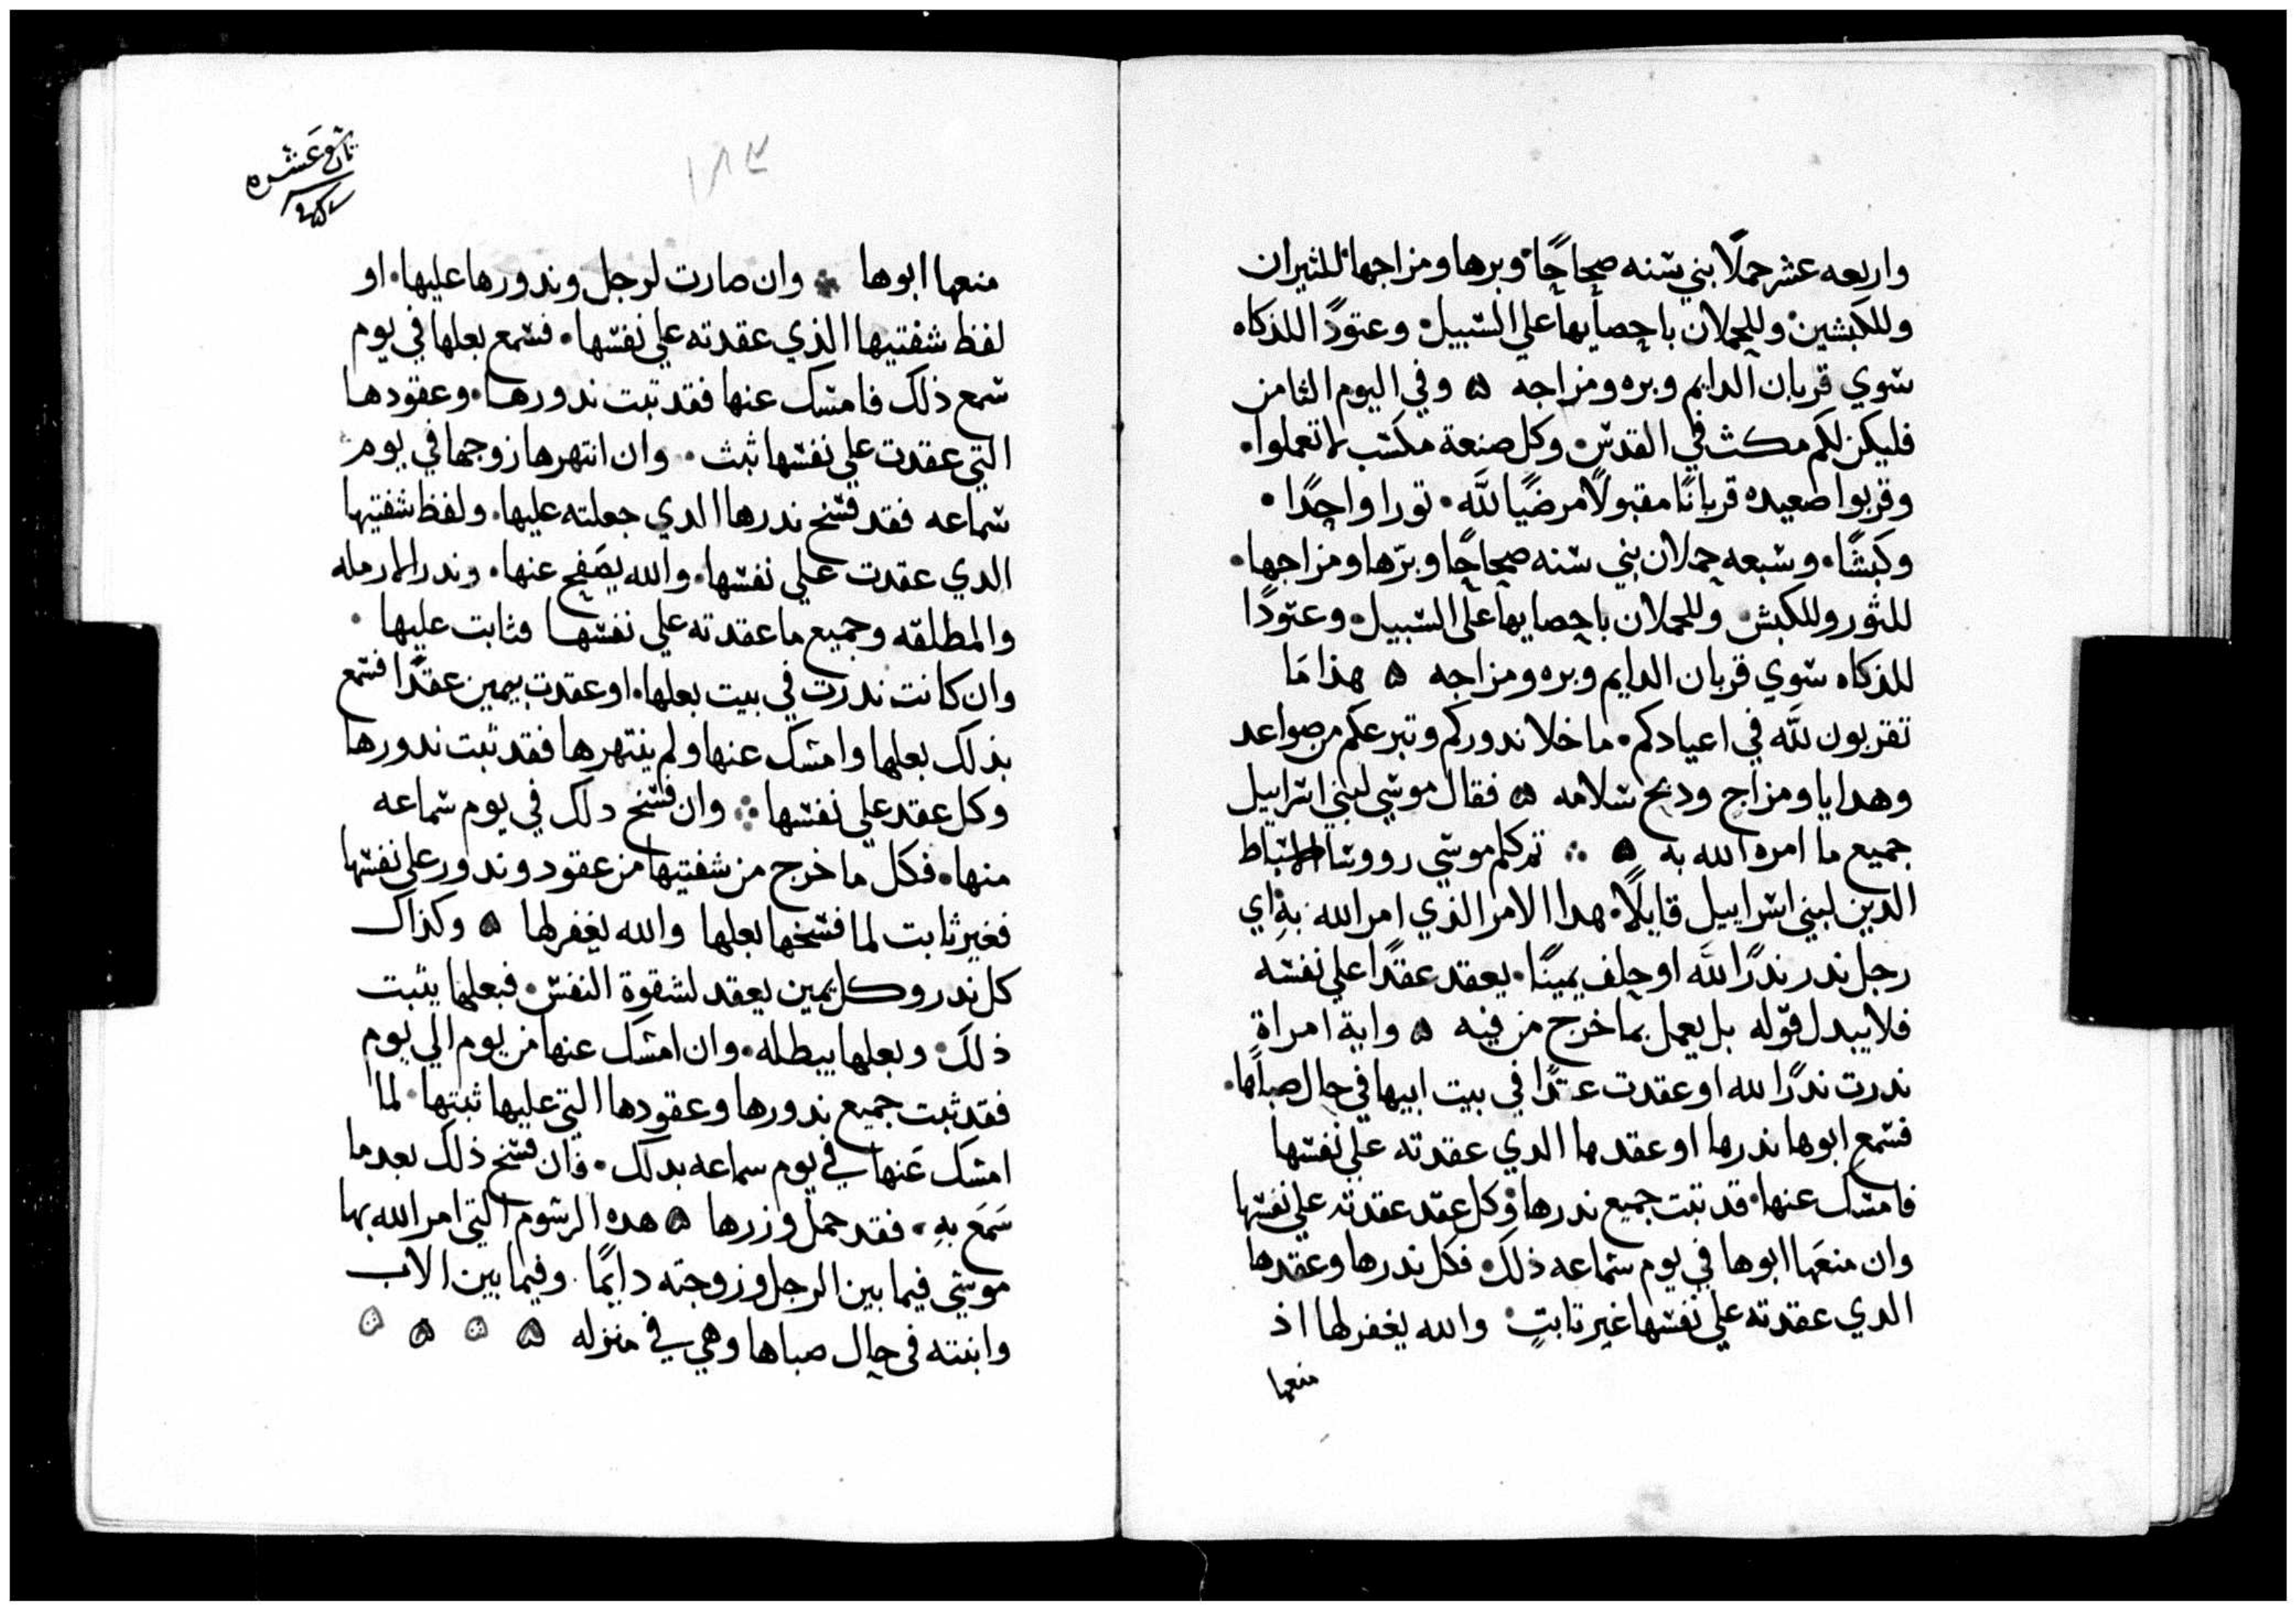 واربعه عشر حملًا بني سنه صحاحًا وبرها ومزاجها للثيران
وللكبشين وللحملان باحصايها علي السبيل وعتودًا للذكاه
سوي قربان الدايم وبره ومزاجه ۵ وفي اليوم الثامن
فليكن لكم مكث في القدس وكل صنعة مكسب لا تعملوا
وقربوا صعيده قربانًا مقبولًا مرضيًا لله تورا واحدًا
وكبشًا وسبعه حملان بني سنه صحاحًا وبرّها ومزاجها
للثور وللكبش وللحملان باحصايها علي السبيل وعتودًا
للذكاه سوي قربان الدايم وبره ومزاجه ۵ هذا مَا
تقربون لله في اعيادكم ما خلا ندوركم وتبرعكم من صواعد
وهدايا ومزاج ودبح سلامه ۵ فقال موسي لبني اسراييل
جميع ما امره الله به ۵ ثم كلم موسي رووسا اسباط
الدين لبني اسراييل قايلًا هدا الامر الذي امر الله بهِ اي
رجل ندر ندرًا لله او حلف يمينًا يعقد عقدًا علي نفسه
فلا يبدل قوله بل يعمل بما خرج من فيه ۵ واية امراة
ندرت ندرًا لله او عقدت عقدًا في بيت ابيها في حال صباها
فسمع ابوها ندرها او عقدها الدي عقدته علي نفسها
فامسك عنها قد تبت جميع ندرها وكل عقد عقدته علي نفسها
وان منعَها ابوها في يوم سماعه ذلك فكل ندرها وعقدها
الدي عقدته علي نفسها غير تابتٍ والله يغفر لها اذ
منعها
١٨٣
تاسع عشره
منعها ابوها وان صارت لرجل وندورها عليها او
لفظ شفتيها الذي عقدته علي نفسها فسمع بعلها في يوم
سمع ذلك فامسك عنها فقد تبت ندورها وعقودها
التي عقدت علي نفسها ثبت وان انتهرها زوجها في يوم
سماعه فقد فسخ ندرها الدي جعلته عليها ولفظ شفتيها
الدي عقدت علي نفسها والله يصَفح عنها وندر الارمله
والمطلقه وجميع ما عقدته علي نفسها فثابت عليها
وان كانت ندرت في بيت بعلها او عقدت بيمين عقدًا فسمع
بذلك بعلها وامسك عنها ولم ينتهرها فقد تبت ندورها
وكل عقد علي نفسها وان فسخ دلك في يوم سماعه
منها فكل ما خرج من شفتيها من عقود وندور علي نفسها
فغير ثابت لما فسخها بعلها والله يغفر لها ۵ وكذاك
كل ندر وكل يمين يعقد لشقوة النفس فبعلها يثبت
ذلك وبعلها يبطله وان امسك عنها من يوم الي يوم
فقد ثبت جميع ندورها وعقودها التي عليها ثبتها لما
امسك عَنها في يوم سماعه بدلك فان فسخ ذلك بعدما
سَمَع بهِ فقد حمل وزرها ۵ هده الرسوم التي امر الله بها
موسي فيما بين الرجل وزوجته دايمًا وفيما بين الاب
وابنته في حال صباها وهي في منزله ۵ ۵ ۵ ۵